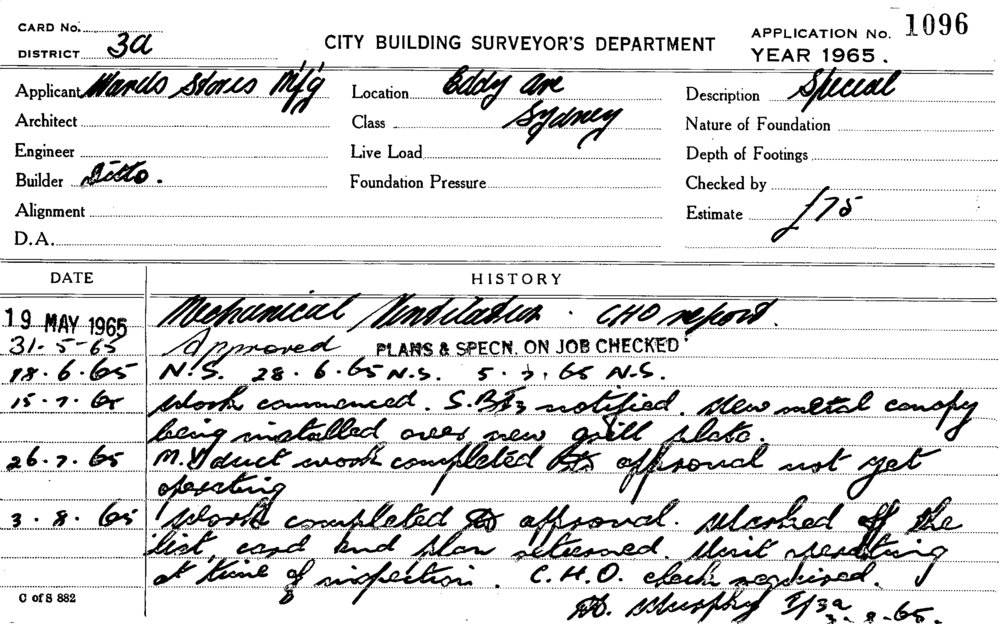 CARD No.
DISTRICT 3a
CITY BUILDING SURVEYOR'S DEPARTMENT
APPLICATION No. 1096
YEAR 1965.
Applicant Wards Stores Mfg Location Eddy Ave Description Special
Architect Class Sydney Nature of Foundation
Engineer Live Load Depth of Footings
Builder Ditto. Foundation Pressure Checked by
Alignment Estimate £75
D.A.
DATE HISTORY
19 MAY 1965 Mechanical Ventilation. CHO report.
31-5-65 Approved PLANS & SPECN. ON JOB CHECKED
18.6.65 N.S. 28.6.65 N.S. 5.7.65 N.S.
15.7.65 Work commenced. notified. New metal canopy
being installed over new grill plate.
26.7.65 M.V duct work completed to approval not yet
operating
3.8.65 Work completed to approval. Marked off the
list, card and plan returned. Unit operating
at time of inspection. C.H.O. check required.
C of S 882
Murphy 3a
3.8.65.